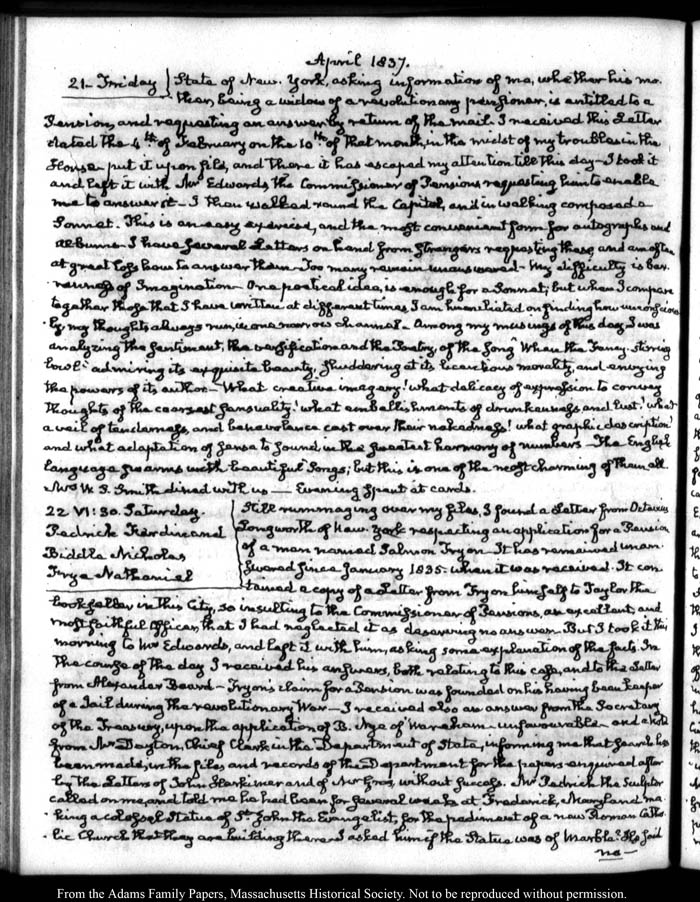 April 1837.
21. Friday State of New-York, asking information of me, whether his mo-
ther, being a widow of a revolutionary pensioner, is entitled to a
Pension, and requesting an answer by return of the mail. I received this Letter
dated the 4th of February on the 10th of that month, in the midst of my troubles in the
House—put it upon file, and there it has escaped my attention till this day—I took it
and left it with Mr Edwards, the Commissioner of Pensions requesting him to enable
me to answer it—I then walked round the Capitol, and in walking composed a
Sonnet. This is an easy exercise, and the most convenient form for autographs and
albums—I have several Letters on hand from strangers requesting these, and am often
at great loss how to answer them—Too many remain unanswered—My difficulty is bar-
renness of Imagination—One poetical idea, is enough for a Sonnet; but when I compare
together those that I have written at different times, I am humiliated on finding how
by my thoughts always run, in one narrow channel—Among my musings of this day, I was
analyzing the sentiment, the versification and the Poetry, of the Song "When the Fancy-stirring
bowl" admiring its exquisite beauty, shuddering at its licentious morality, and envying
the powers of its author—What creative imagery! what delicacy of expression to convey
thoughts of the coarsest sensuality! what embellishments of drunkenness and lust! what
a veil of tenderness, and benevolence cast over their nakedness! what graphic description
and what adaptation of sense to sound, in the sweetest harmony of numbers—The English
language swarms with beautiful Songs; but this is one of the most charming of them all
Mrs W. S. Smith dined with us—Evening spent at cards.
22 VI:30. Saturday. Still rummaging over my files, I found a Letter from Octavius
Pedrick Ferdinand Longworth of New-York respecting an application for a Pension
Biddle Nicholas of a man named Salmon Tryon. It has remained unan-
Frye Nathaniel swered since January 1835. when it was received. It con-
tained a copy of a Letter from Tryon himself to Taylor the
bookseller in this City, so insulting to the Commissioner of Pensions, an excellent, and
most faithful Officer, that I had neglected it as deserving no answer. But I took it this
morning to Mr Edwards, and left it with him, asking some explanation of the facts. In
the course of the day I received his answers, both relating to this case, and to the Letter
from Alexander Beard—Tryon's claim for a Pension was founded on his having been keeper
of a Jail during the revolutionary War—I received also an answer from the Secretary
of the Treasury, upon the application of B. Nye of Wareham—unfavourable—and a Note
from Mr Dayton, Chief Clerk in the Department of State, informing me that search has
been made, in the files and records of the Department for the papers enquired after
by the Letters of John Harkimer and of Mr without success. Mr Pedrick the sculptor
called on me, and told me he had been for several weeks at Frederick, Maryland ma-
king a colossal Statue of St. John the Evangelist, for the pediment of a new Roman Catho-
lic Church that they are building there—I asked him if the Statue was of Marble. He said
no—
From the Adams Family Papers, Massachusetts Historical Society. Not to be reproduced without permission.